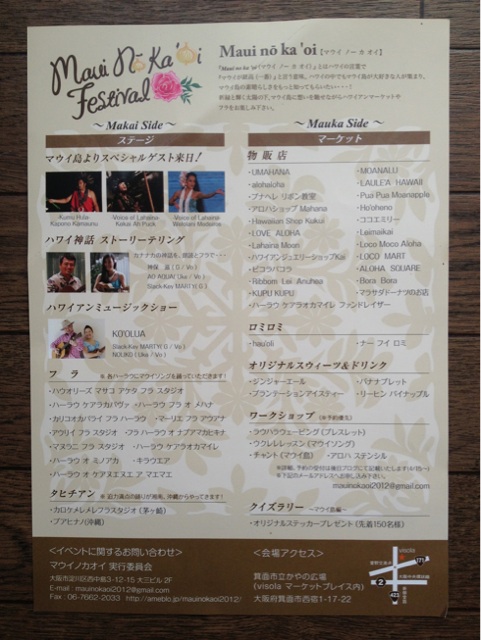 Maui Nō Ka 'Oi
Festival
Maui nō ka 'oi【マウイ ノー カ オイ】
『Maui no ka 'oi（マウイ ノー カ オイ）』とはハワイの言葉で
『マウイが最高（一番）』と言う意味。ハワイの中でもマウイ島が大好きな人が集まり、
マウイ島の素晴らしさをもっと知ってもらいたい・・・！
～ Makai Side ～
ステージ
マウイ島よりスペシャルゲスト来日！
Kumu Hula
Kapono Kamaunu
Voice of Lahaina
Voice of Lahaina
ハワイ神話 ストーリーテリング
カナナカの神話を、朗読とフラで・・・
Slack-Key MARTY( G )
ハワイアンミュージックショー
KO'OLUA
Slack-Key MARTY( G / Vo )
NOUKO ( Uke / Vo )
フ ラ
※ 各ハーラウにマウイソングを踊っていただきます！
・ハウオリーズ マサコ アケタ フラ スタジオ
・ハーラウ ケアラカパヴァ ・ハーラウ フラ オ メハナ
・カリコオカパライ フラ ハーラウ ・マーリエ フラ アウアナ
・アウリイ フラ スタジオ ・フラ ハーラウ オ ナプアマカヒキナ
・マヌラニ フラ スタジオ ・ハーラウ ケアラオカマイレ
・ハーラウ オ ミノアカ ・キラウエア
・ハーラウ オ ケアヌエヌエ ア マエマエ
タヒチアン
※ 迫力満点の踊りが湘南、沖縄からやってきます！
・カロケメレメレフラスタジオ（茅ヶ崎）
・プアヒナノ(沖縄)
～ Mauka Side ～
マーケット
物 販 店
・UMAHANA
・alohaloha
・プナヘレ リボン教室
・アロハショップ Mahana
・Hawaiian Shop Kukui
・LOVE ALOHA
・Lahaina Moon
・ハワイアンジュエリーショップKai
・ピコラパコラ
・Ribbon Lei Anuhea
・KUPU KUPU
・ハーラウ ケアラオカマイレ ファンドレイザー
・MOANALU
・LAULE'A HAWAII
・Pua Pua Moanapple
・Ho'oheno
・ココエミリー
・Leimaikai
・Loco Moco Aloha
・LOCO MART
・ALOHA SQUARE
・Bora Bora
・マラサダドーナツのお店
ロミロミ
・hau'oli ・ナー フイ ロミ
オリジナルスウィーツ＆ドリンク
・ジンジャーエール ・バナナブレット
・プランテーションアイスティー ・リーヒン パイナップル
ワークショップ（※予約優先）
・ラウハラウェービング（ブレスレット）
・ウクレレレッスン（マウイソング）
・チャント（マウイ島） ・アロハ ステンシル
※詳細、予約の受付は後日ブログにて記載いたします(4/15～)
※下記のメールアドレスへお申し込み下さい。
mauinokaoi2012@gmail.com
クイズラリー ～マウイ島編～
・オリジナルステッカープレゼント（先着150名様）
＜イベントに関するお問い合わせ＞
マウイノカオイ 実行委員会
大阪市淀川区西中島3-12-15 大三ビル 2F
E-mail : mauinokaoi2012@gmail.com
Fax : 06-7662-2033 http://ameblo.jp/mauinokaoi2012/
＜会場アクセス＞
箕面市立かやの広場
(visola マーケットプレイス内)
大阪府箕面市西宿1-17-22
visola
171
2
423